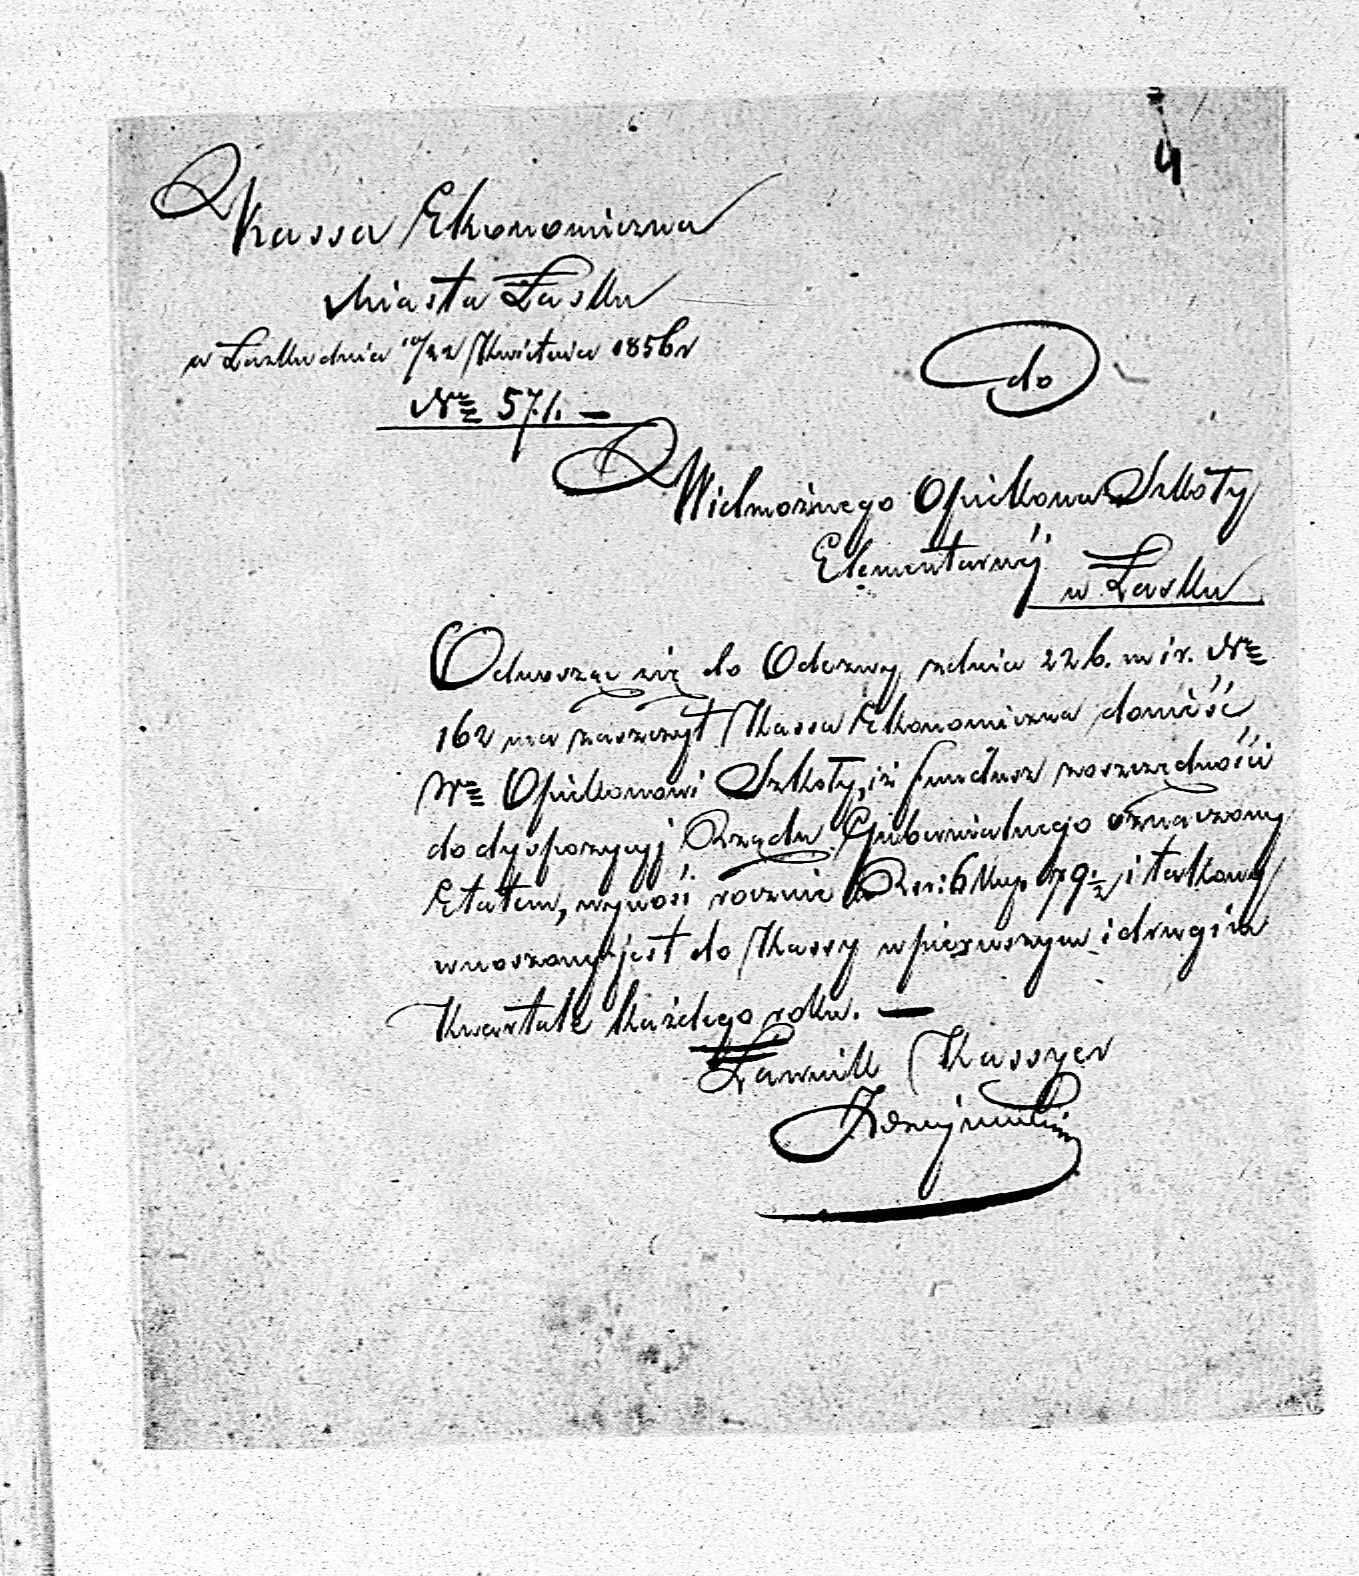 4
Kassa Ekonomiczna
Miasta Łasku
w Łasku dnia 10/22 Kwietnia 1856 r
Nr 571. —
do
Wielmożnego Opiekuna Szkoły
Elementarnéj
w Łasku
Odnosząc się do Odezwy z dnia 22 b. m i r. Nr
162 ma zaszczyt Kassa Ekonomiczna donieść
Wm Opiekunowi Szkoły, iż fundusz z oszczędności
do dyspozycyj Rządu Gubernialnego oznaczony
Etatem, wynosi rocznie Rsr: 6 kop. 79½ i takowy
wnoszony jest do Kassy w pierwszym i drugim
Kwartale każdego roku. —
Ławnik Kassyer